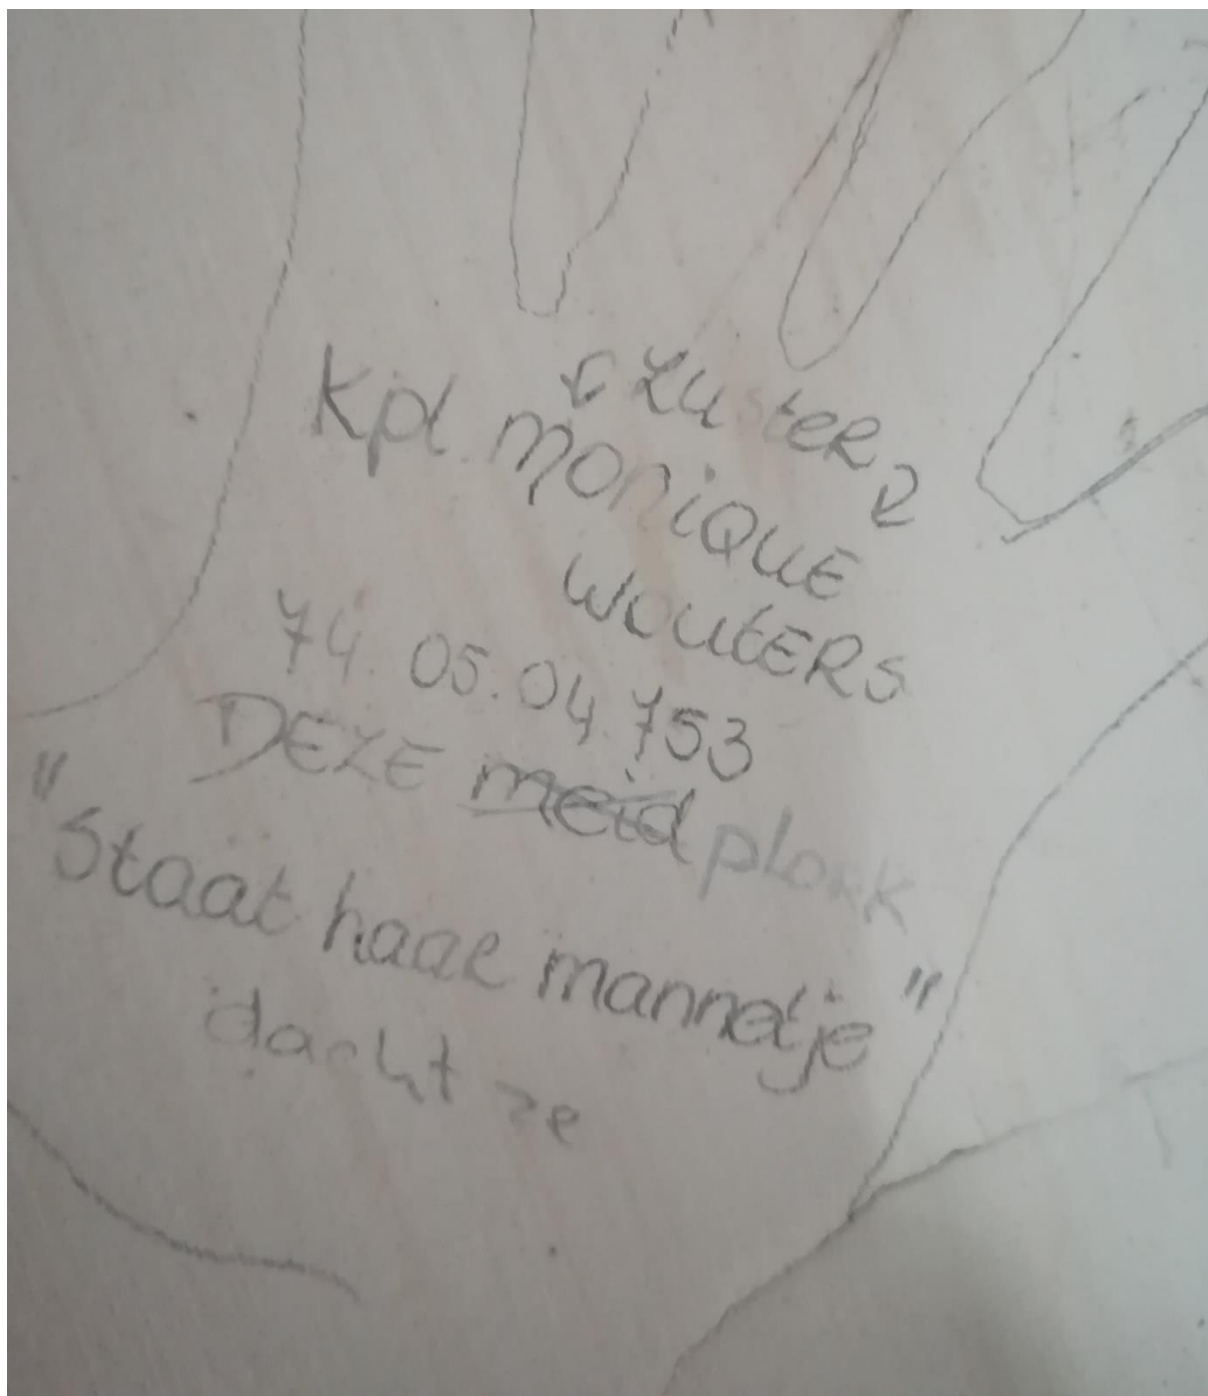 zuster
Kpl. Monique
Wouters
74.05.04.753
DEZE meid plork
"Staat haar mannetje"
dacht ze